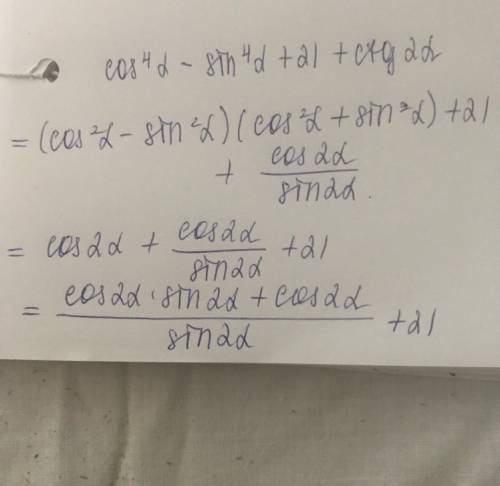 cos⁴α - sin⁴α + 21 + ctg 2α
= (cos²α - sin²α)(cos²α + sin²α) + 21
+ cos2α / sin2α.
= cos2α + cos2α / sin2α + 21
= (cos2α · sin2α + cos2α) / sin2α + 21